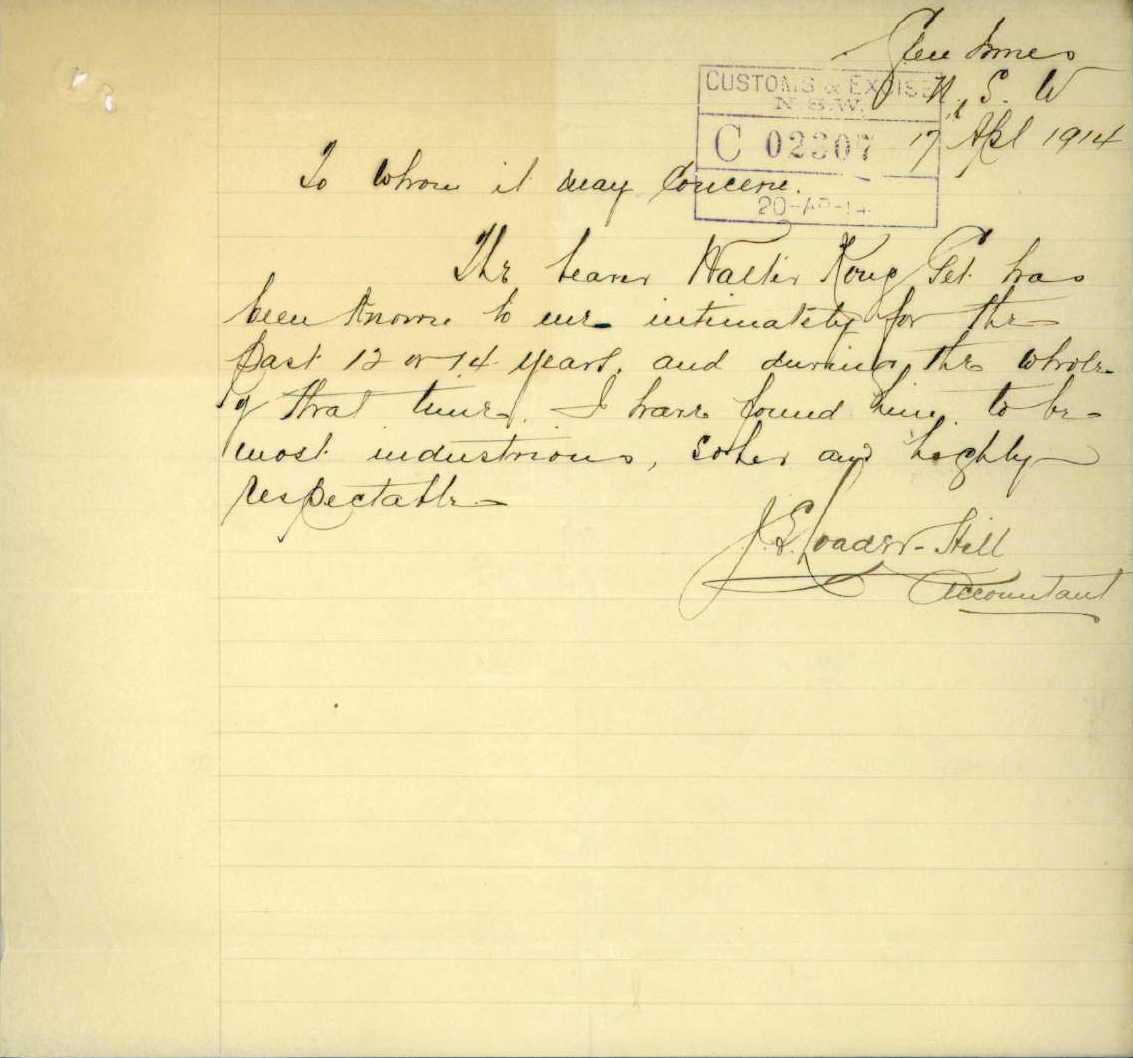 Glen Innes
N. S. W
17th Apl 1914
CUSTOMS & EXCISE
N.S.W.
C 02307
20-AP-14
To whom it may Concern.
The bearer Walter Kong Get has
been known to me intimately for the
past 12 or 14 years, and during the whole
of that time, I have found him to be
most industrious, sober and highly
respectable
J. E. Loader-Hill
Accountant